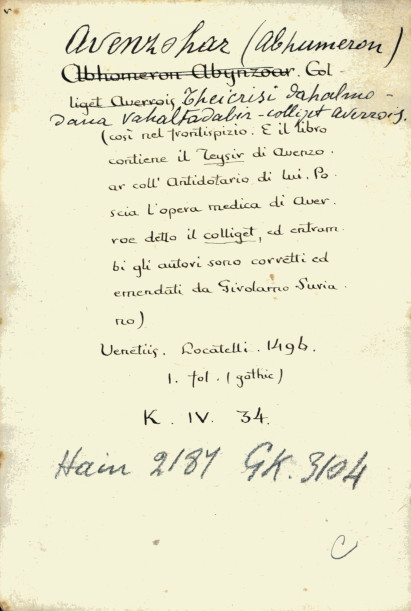 Avenzohar (Abhumeron)
Abhomeron Abynzoar. Col-
liget Averrois Theicrisi dahalmo-
dana Vahaltadabir - colliget Averrois.
(così nel frontispizio. E il libro
contiene il Teysir di Avenzo.
ar coll' Antidotario di lui. Po.
scia l'opera medica di Aver.
roe detto il colliget, ed entram.
bi gli autori sono corretti ed
emendati da Girolamo Suria.
no)
Venetiis. Locatelli. 1496.
1. fol. (gothic)
K. IV. 34.
Hain 2187 GK. 3104
C